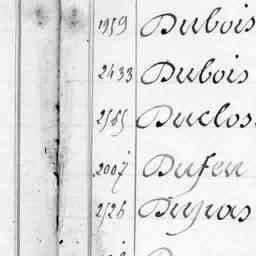 1959 Dubois
2433 Dubois
2585 Duclos
2007 Dufeu
2526 Dupas